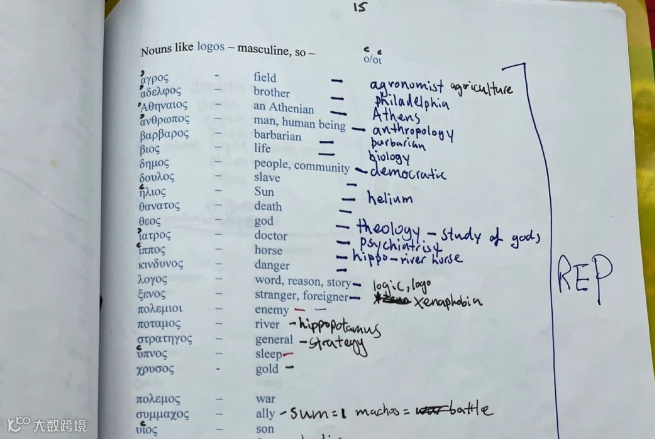 15
Nouns like logos – masculine, so – ὁ/οἱ
ἀγρος - field – agronomist agriculture
ἀδελφος - brother – philadelphia
Ἀθηναιος - an Athenian – Athens
ἀνθρωπος - man, human being – anthropology
βαρβαρος - barbarian – barbarian
βιος - life – biology
δημος - people, community – democratic
δουλος - slave –
ἡλιος - Sun – helium
θανατος - death –
θεος - god – theology – study of gods
ἰατρος - doctor – psychiatrist
ἱππος - horse – hippo – river horse
κινδυνος - danger –
λογος - word, reason, story – logic, logo
ξενος - stranger, foreigner – xenaphobia
πολεμιοι - enemy – –
ποταμος - river – hippopotamus
στρατηγος - general – strategy
ὑπνος - sleep –
χρυσος - gold –
REP
πολεμος - war
συμμαχος - ally – sum = 1 machos = war battle
υἱος - son
大数跨境